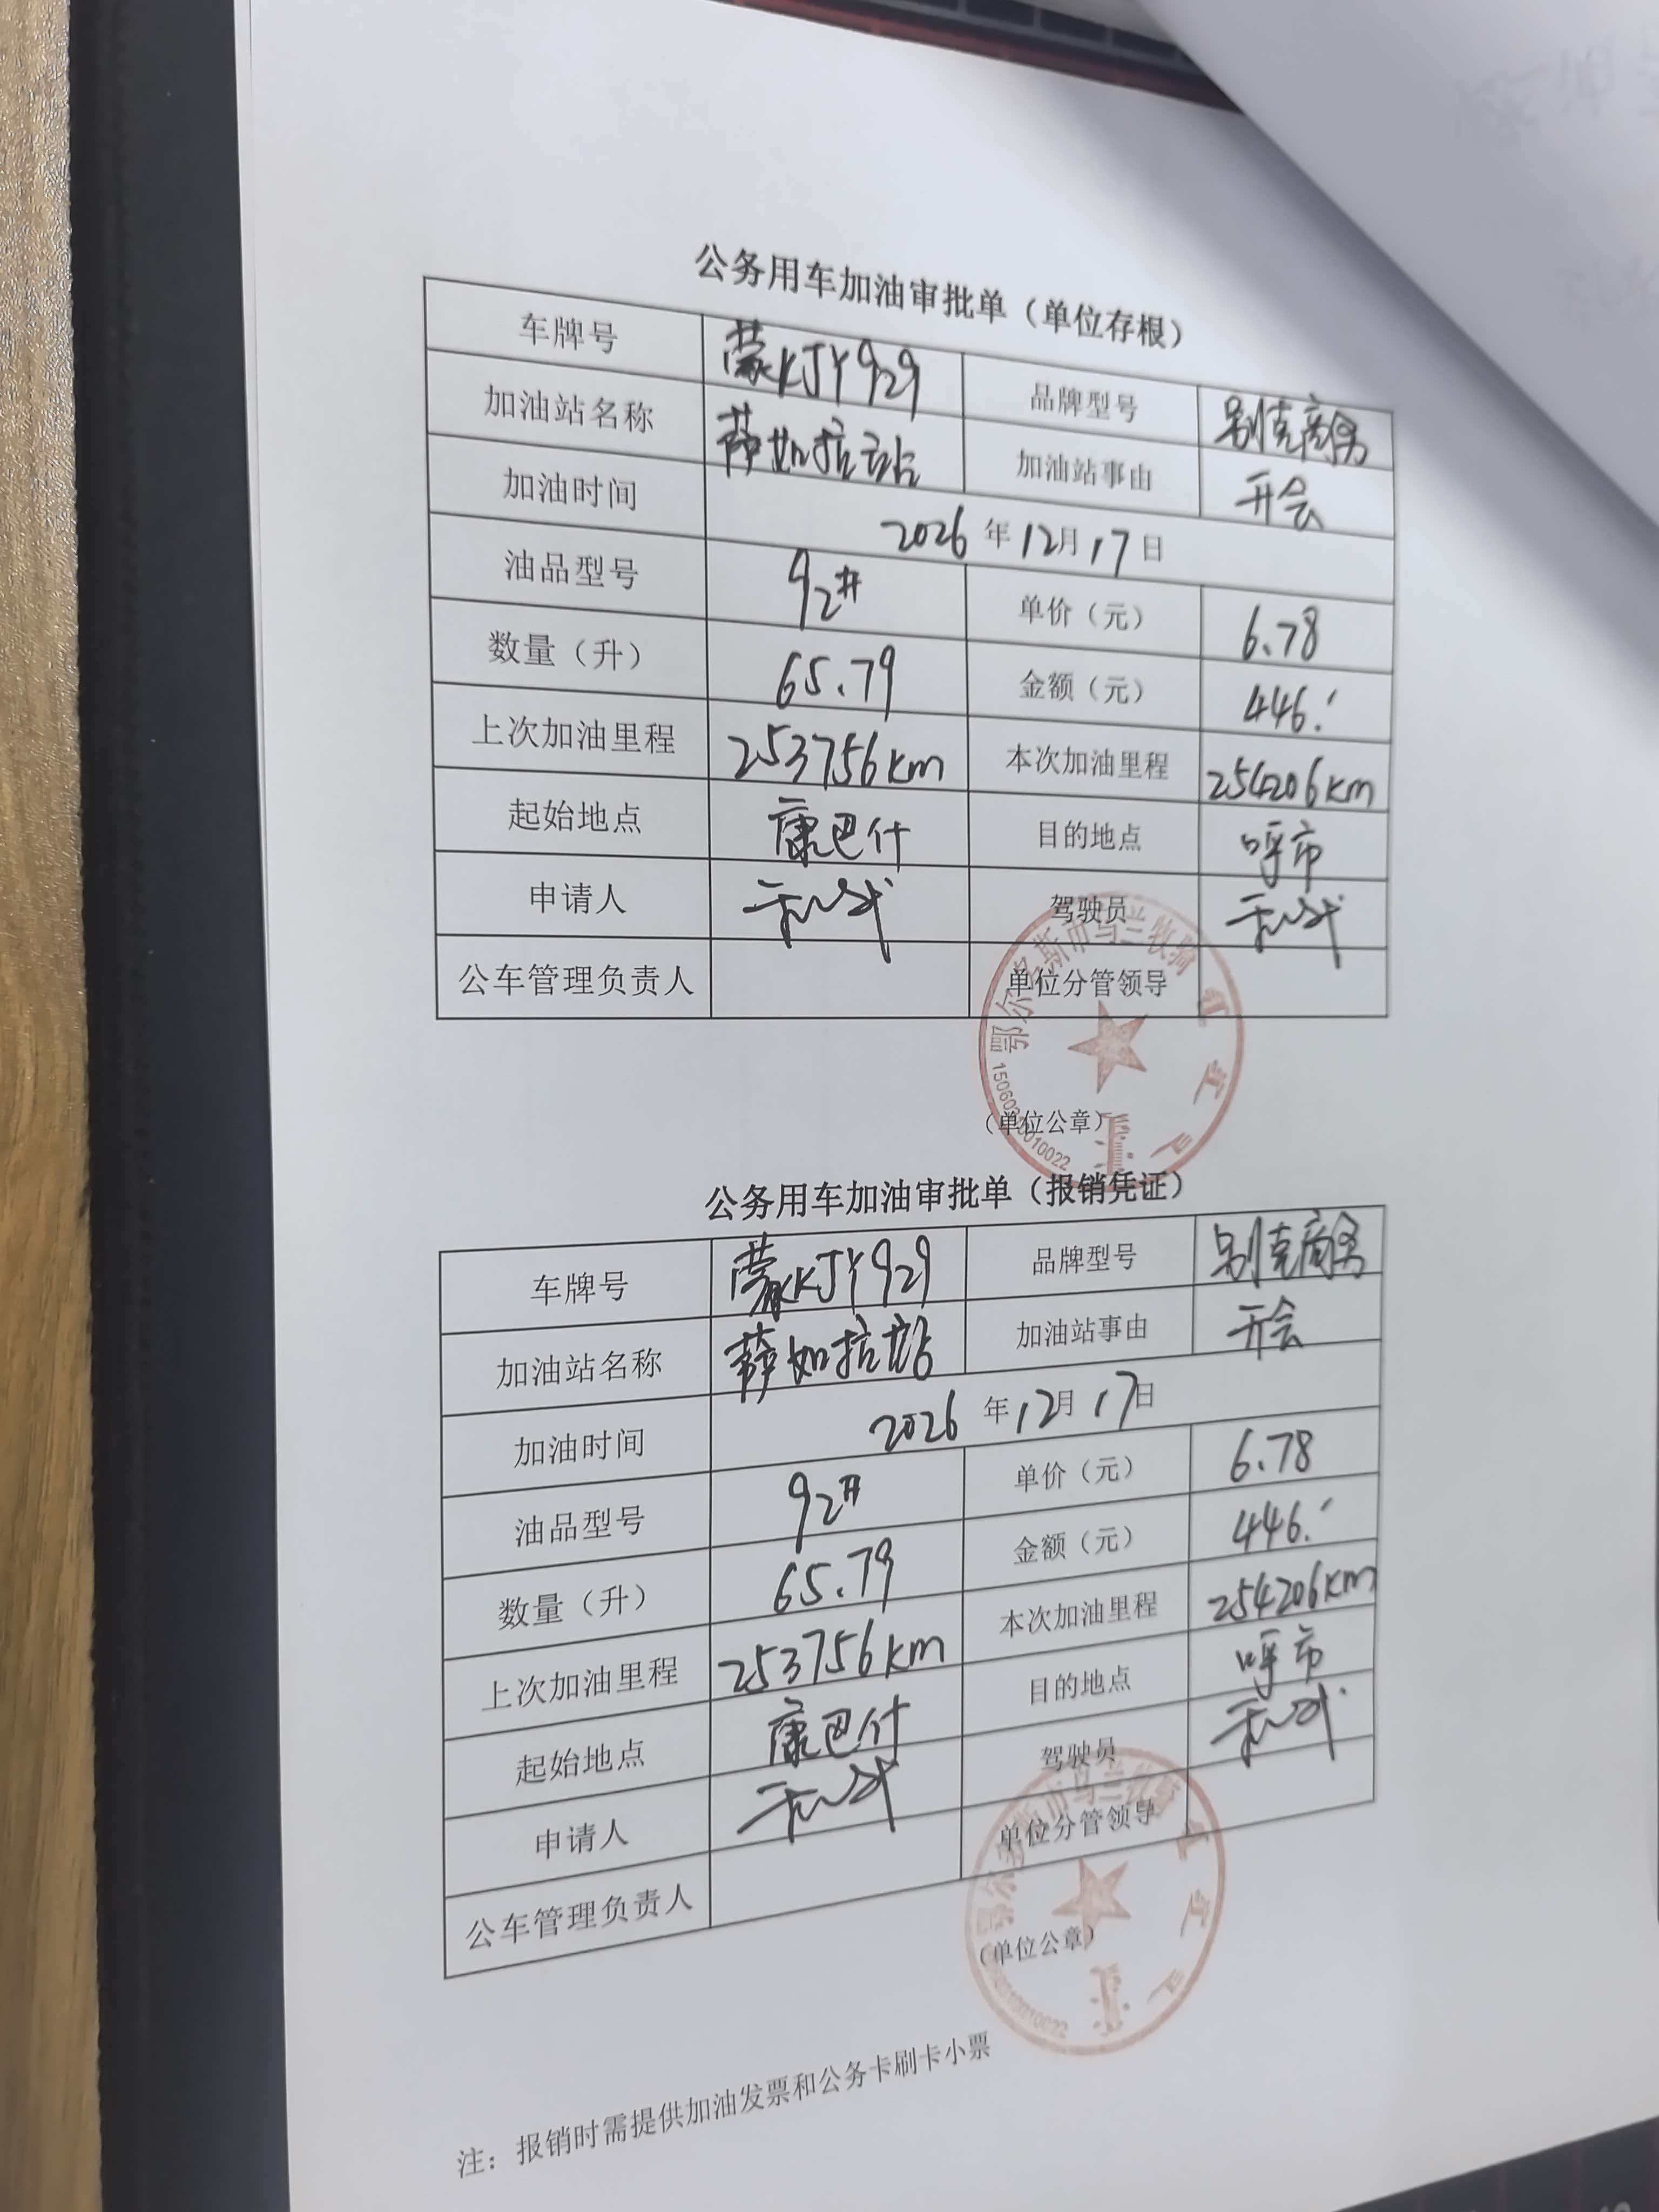 公务用车加油审批单（单位存根）
车牌号 蒙KJY929 品牌型号 别克商务
加油站名称 萨如拉站 加油站事由 开会
加油时间 2026年12月17日
油品型号 92# 单价（元） 6.78
数量（升） 65.79 金额（元） 446.
上次加油里程 253756km 本次加油里程 254206km
起始地点 康巴什 目的地点 呼市
申请人 驾驶员
公车管理负责人 单位分管领导
鄂尔多斯市乌兰牧骑
（单位公章）
公务用车加油审批单（报销凭证）
车牌号 蒙KJY929 品牌型号 别克商务
加油站名称 萨如拉站 加油站事由 开会
加油时间 2026年12月17日
油品型号 92# 单价（元） 6.78
数量（升） 65.79 金额（元） 446.
上次加油里程 253756km 本次加油里程 254206km
起始地点 康巴什 目的地点 呼市
申请人 驾驶员
公车管理负责人 单位分管领导
（单位公章）
注：报销时需提供加油发票和公务卡刷卡小票